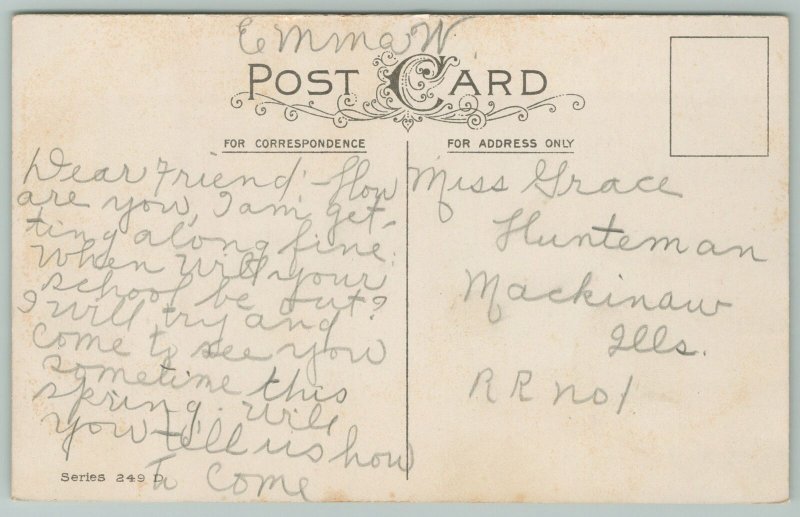 Emma W.
POST CARD
FOR CORRESPONDENCE
FOR ADDRESS ONLY
Dear Friend - How
are you, I am get-
ting along fine.
When will your
school be out?
I will try and
come to see you
sometime this
spring. Will
you tell us how
to come
Series 249 D
Miss Grace
Hunteman
Mackinaw
Ills.
R R no 1